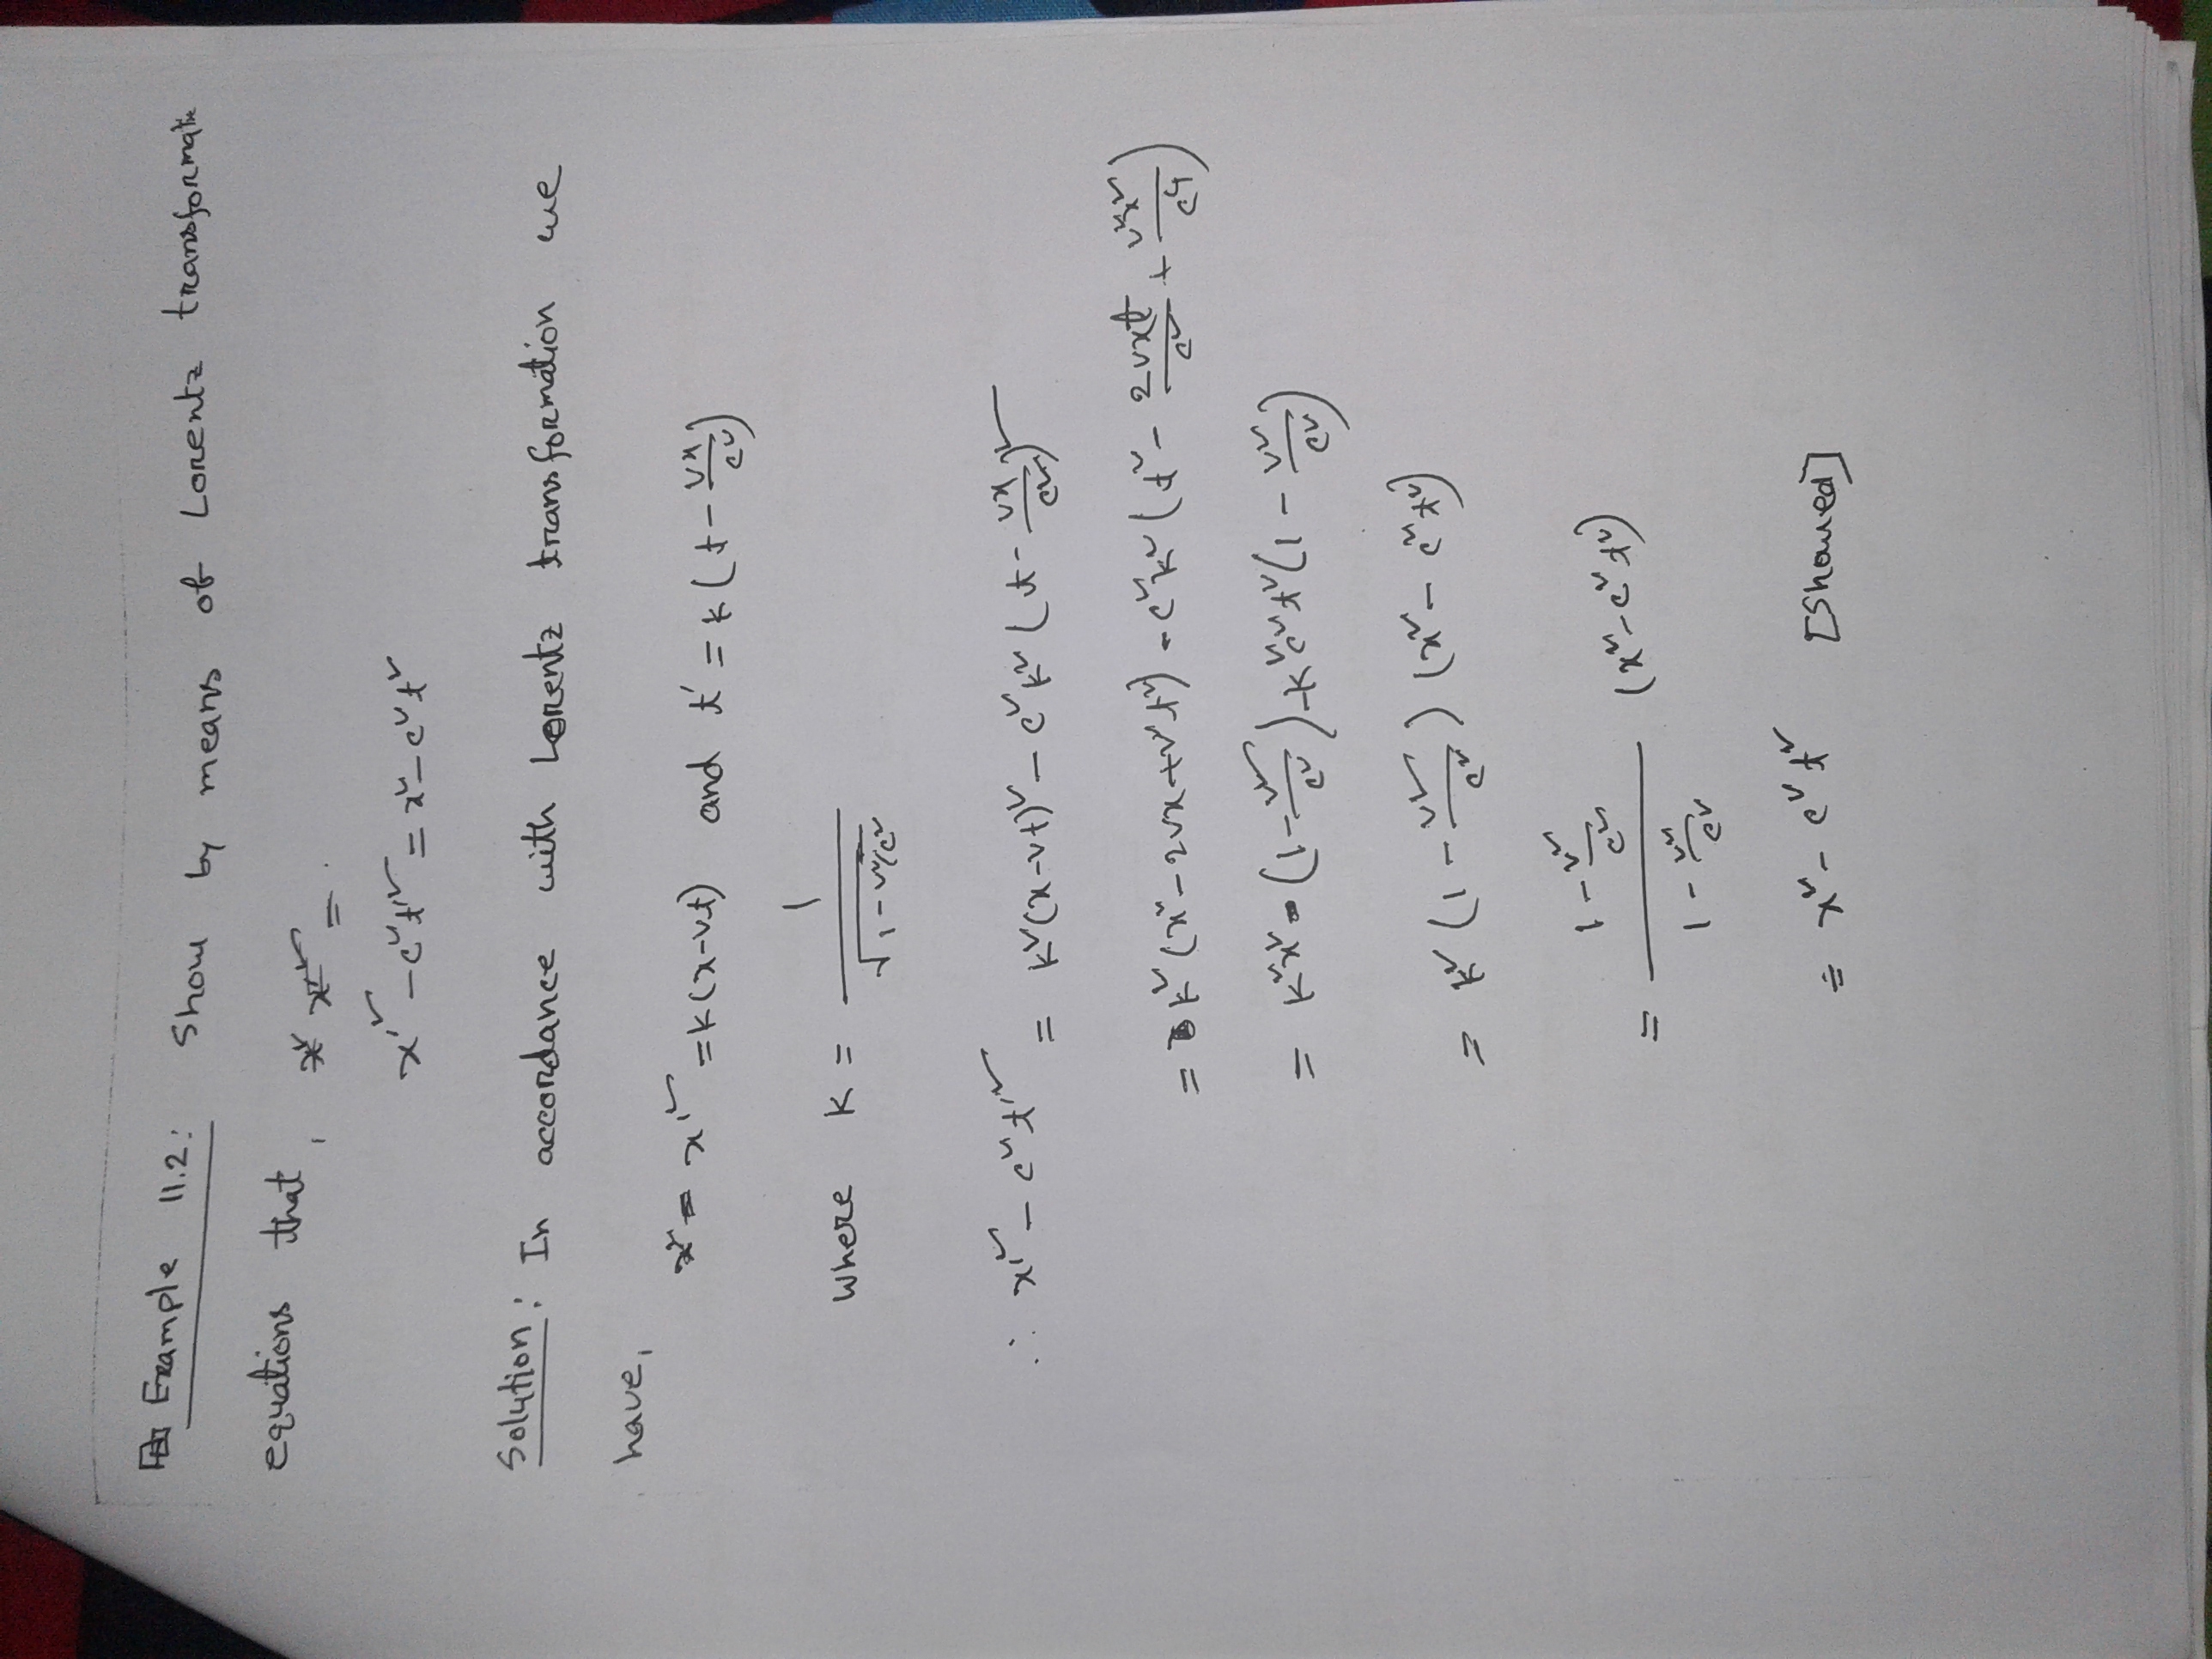 Example 11.2: Show by means of Lorentz transformatin
equations that, x² x'² =
x'² - c²t'² = x² - c²t²
Solution: In accordance with Lorentz transformation we
have,
x² = x'² = k(x-vt) and t' = k(t - vx/c²)
where k = 1/√(1-v²/c²)
∴ x'² - c²t'² = k²(x-vt)² - c²k²(t - vx/c²)²
= k²(x² - 2vx + v²t²) - c²k²(t² - 2vxt/c² + v²x²/c⁴)
= k²x² (1 - v²/c²) - k²c²t²(1 - v²/c²)
= k²(1 - v²/c²) (x² - c²t²)
= (1 - v²/c²)/(1 - v²/c²) (x² - c²t²)
= x² - c²t² [Showed]